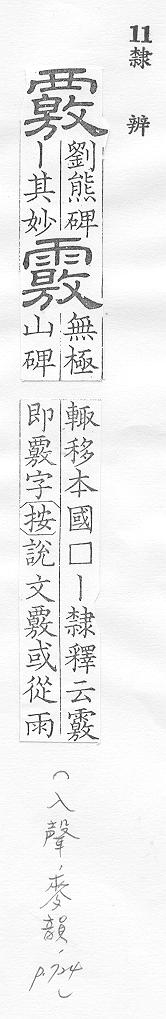 11 隸辨
覈
劉熊碑
丨其妙
無極
山碑
輙移本國□丨隸釋云
即覈字按說文覈或從雨
（入聲，麥韻，p.724）